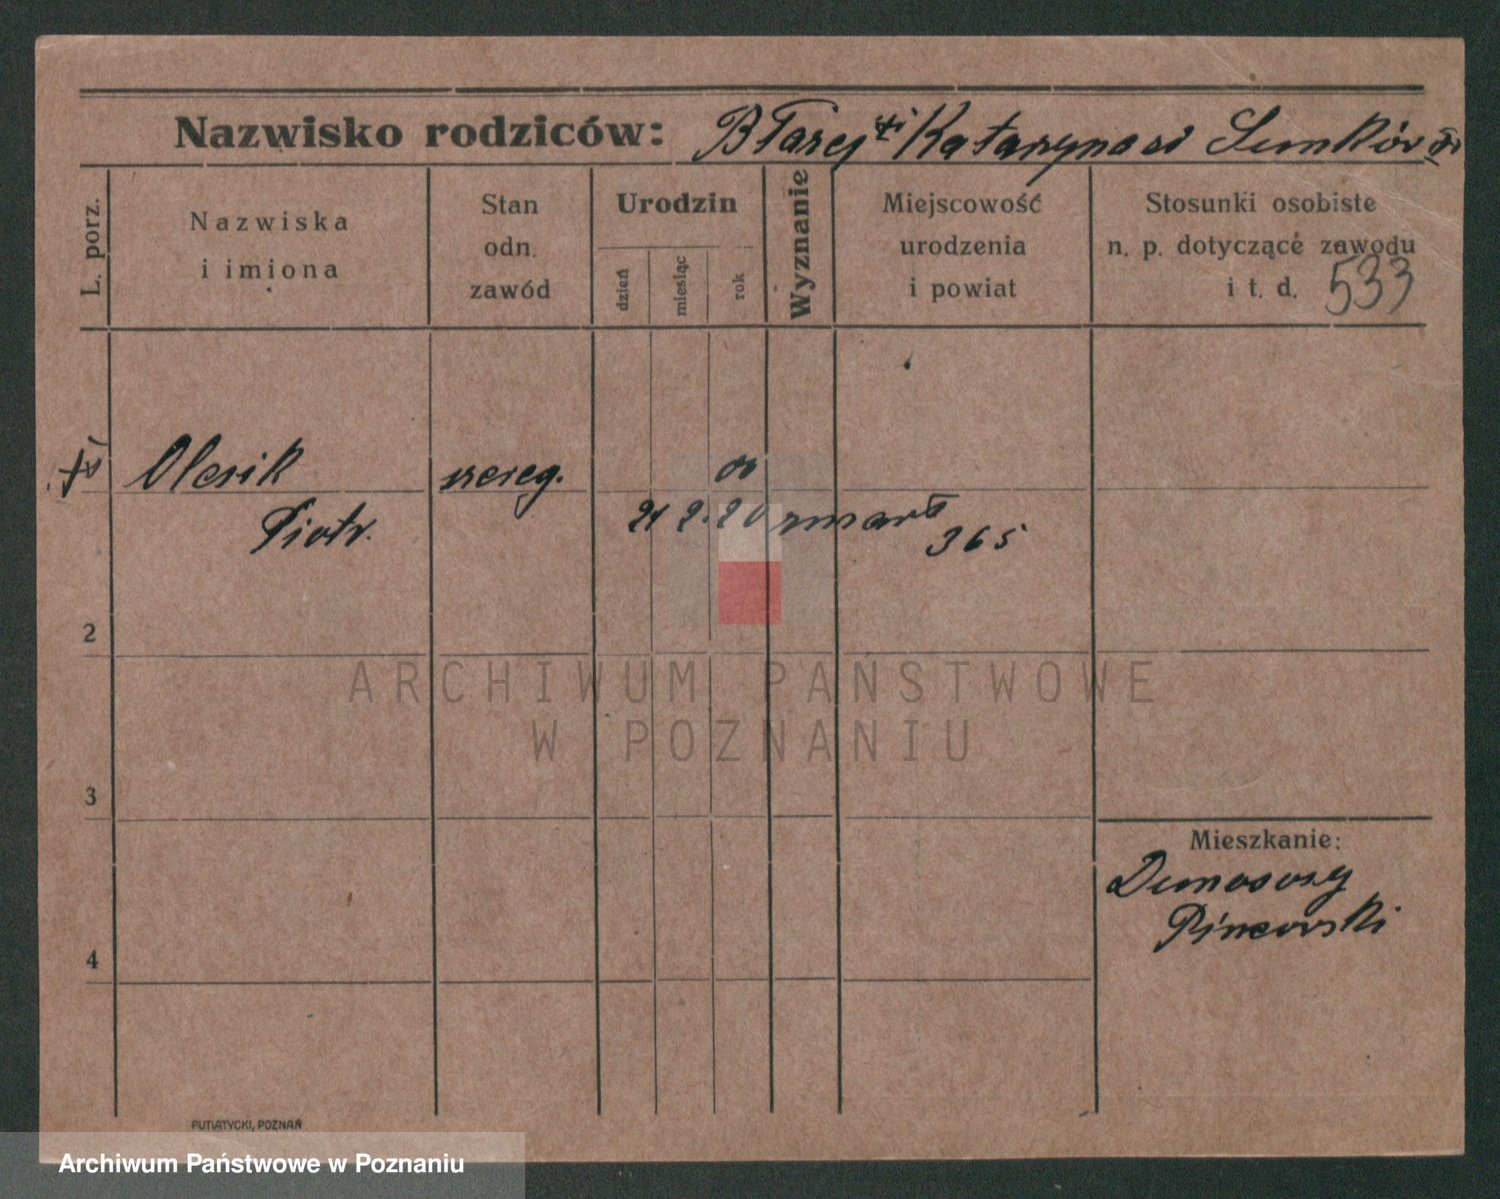 Nazwisko rodziców: Błazej i Katarzyna
L. porz.
Nazwiska
i imiona
Stan
odn.
zawód
Urodzin
dzień
miesiąc
rok
Wyznanie
Miejscowość
urodzenia
i powiat
Stosunki osobiste
n. p. dotyczące zawodu
i t. d. 533
Olesik szereg.
Piotr. 21 2. 20 zmarł
365
2
3
4
Mieszkanie:
PUTIATYCKI, POZNAŃ
ARCHIWUM PAŃSTWOWE
W POZNANIU
Archiwum Państwowe w Poznaniu